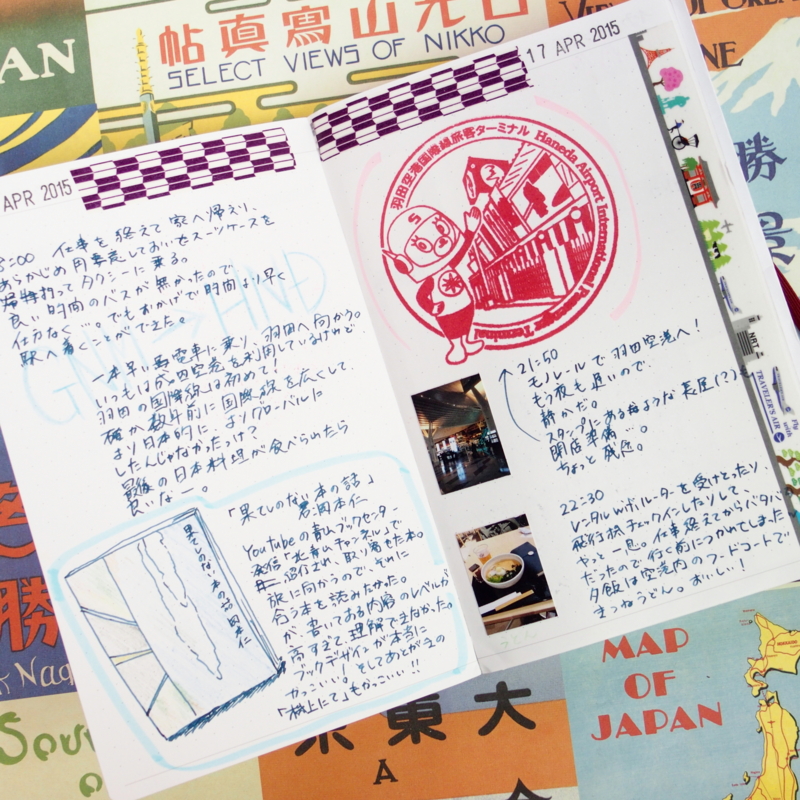 AN
帖真寫山光日
SELECT VIEWS OF NIKKO
NE
勝
景
APR 2015
:00 仕事を終えて家へ帰り、
あらかじめ用意しておいたスーツケースを
持ってタクシーに乗る。
良い時間のバスが無かったので
仕方なく…。でもおかげで時間より早く
駅へ着くことができた。
一本早い電車に乗り、羽田へ向かう。
いつもは成田空港を利用しているけれど、
羽田の国際線は初めて！
確か数年前に国際線を広くして、
より日本的に、よりグローバルに
したんじゃなかったっけ？
最後の日本料理が食べられたら
良いなー。
「果てしのない本の話」
岡本仁
YouTubeの青山ブックセンター
で
紹介され、取り寄せた本。
旅に向かうので、それに
合う本を読みたかった。
が、書いてある内容のレベルが
高すぎて、理解できなかった。
ブックデザインが本当に
かっこいい。そしてあとがきの
「机上にて」もかっこいい!!
果てしのない本の話 岡本仁
17 APR 2015
羽田空港国際線旅客ターミナル Haneda Airport International Passenger Terminal
21:50
モノレールで羽田空港へ！
もう夜も遅いので
静かだ。
スタンプにある様な長屋(？)も
開店準備…。
ちょっと残念。
22:30
レンタルwifiルーターを受けとったり、
飛行機チェックインしたりして、
やっと一息。仕事終えてからバタバタ
だったので行く前につかれてしまった
夕飯は空港内のフードコートで
きつねうどん。おいしい！
NRT
TRAVELER'S AIR
勝
Nag
大東京
A
MAP
OF
JAPAN